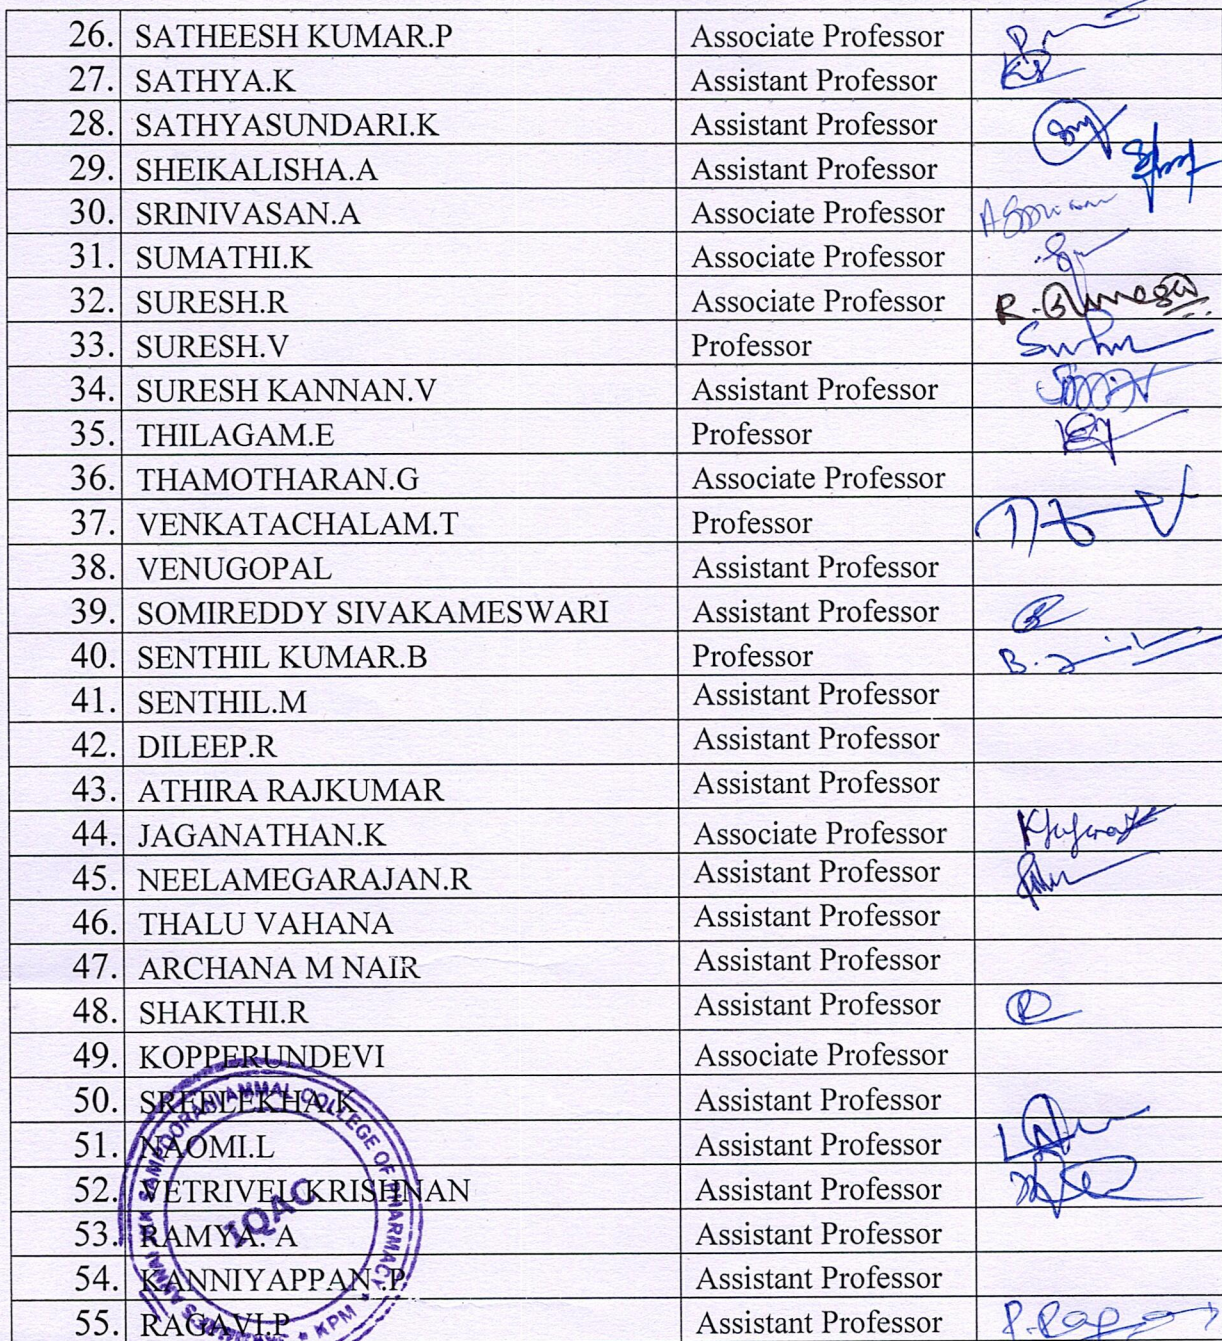 26. SATHEESH KUMAR.P Associate Professor
27. SATHYA.K Assistant Professor
28. SATHYASUNDARI.K Assistant Professor
29. SHEIKALISHA.A Assistant Professor
30. SRINIVASAN.A Associate Professor
31. SUMATHI.K Associate Professor
32. SURESH.R Associate Professor
33. SURESH.V Professor
34. SURESH KANNAN.V Assistant Professor
35. THILAGAM.E Professor
36. THAMOTHARAN.G Associate Professor
37. VENKATACHALAM.T Professor
38. VENUGOPAL Assistant Professor
39. SOMIREDDY SIVAKAMESWARI Assistant Professor
40. SENTHIL KUMAR.B Professor
41. SENTHIL.M Assistant Professor
42. DILEEP.R Assistant Professor
43. ATHIRA RAJKUMAR Assistant Professor
44. JAGANATHAN.K Associate Professor
45. NEELAMEGARAJAN.R Assistant Professor
46. THALU VAHANA Assistant Professor
47. ARCHANA M NAIR Assistant Professor
48. SHAKTHI.R Assistant Professor
49. KOPPERUNDEVI Associate Professor
50. SREELEKHA.K Assistant Professor
51. NAOMI.L Assistant Professor
52. VETRIVEL KRISHNAN Assistant Professor
53. RAMYA. A Assistant Professor
54. KANNIYAPPAN .P. Assistant Professor
55. RAGAVI.P Assistant Professor
ANNAI JKK SAMPOORANI AMMAL COLLEGE OF PHARMACY * KPM *
IQAC